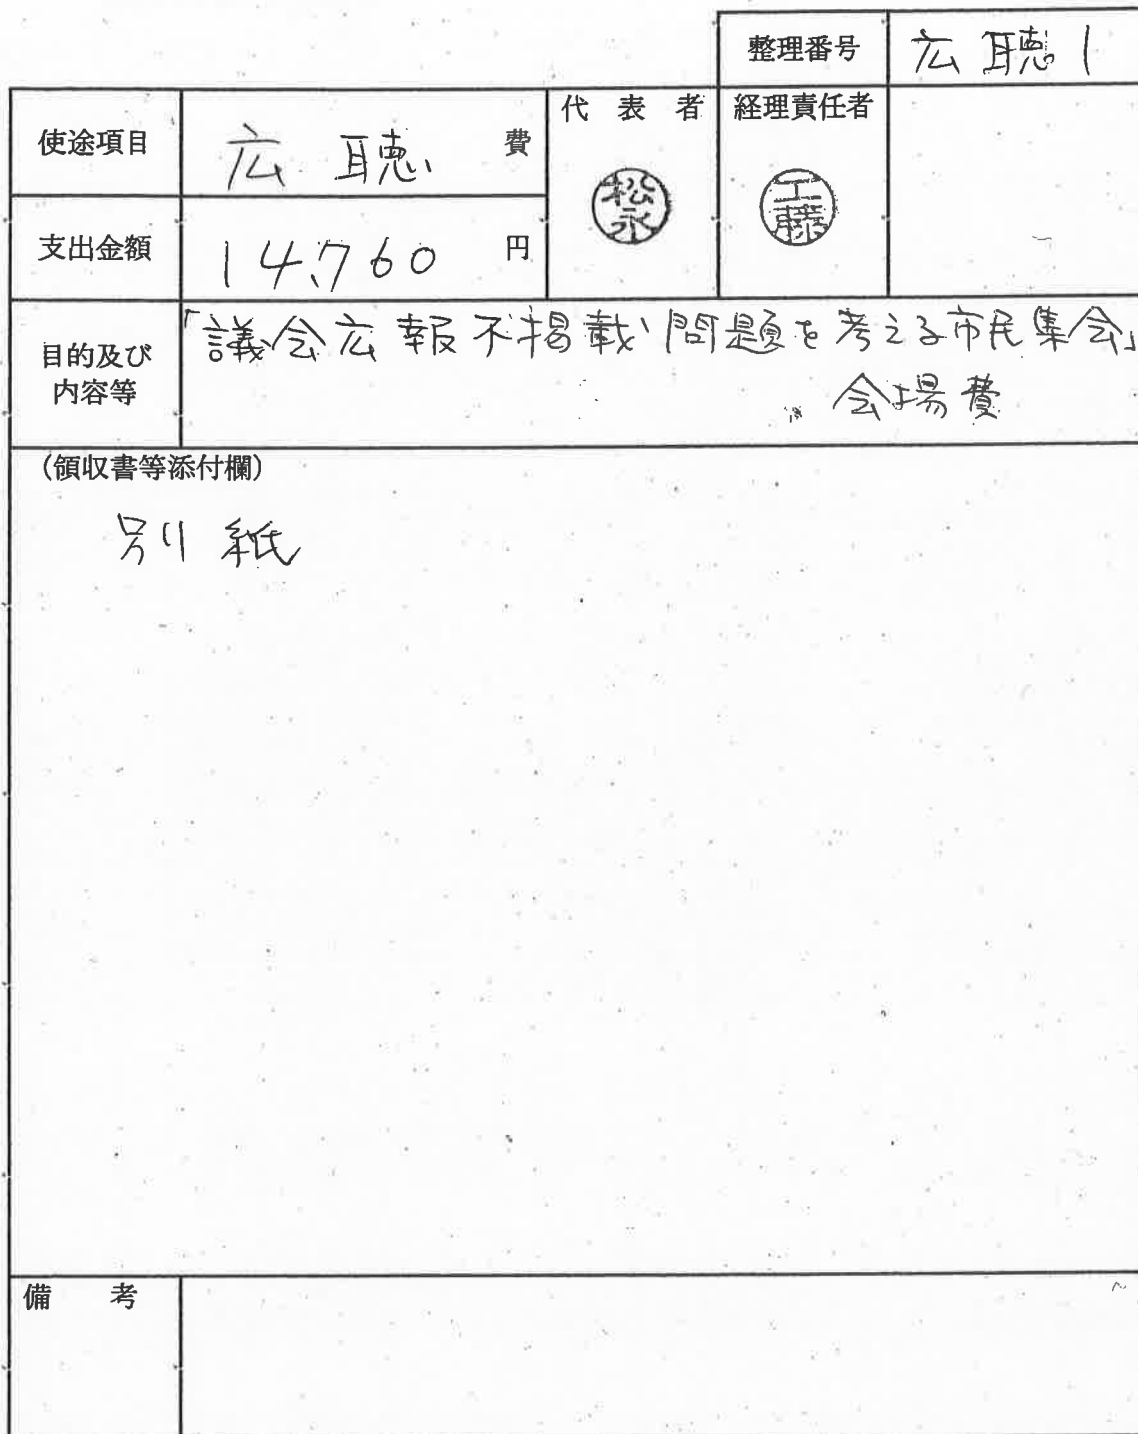 整理番号 広聴1
使途項目 広聴 費
代表者 経理責任者
松永 工藤
支出金額 14,760 円
目的及び内容等
「議会広報不掲載問題を考える市民集会」
会場費
(領収書等添付欄)
別紙
備考